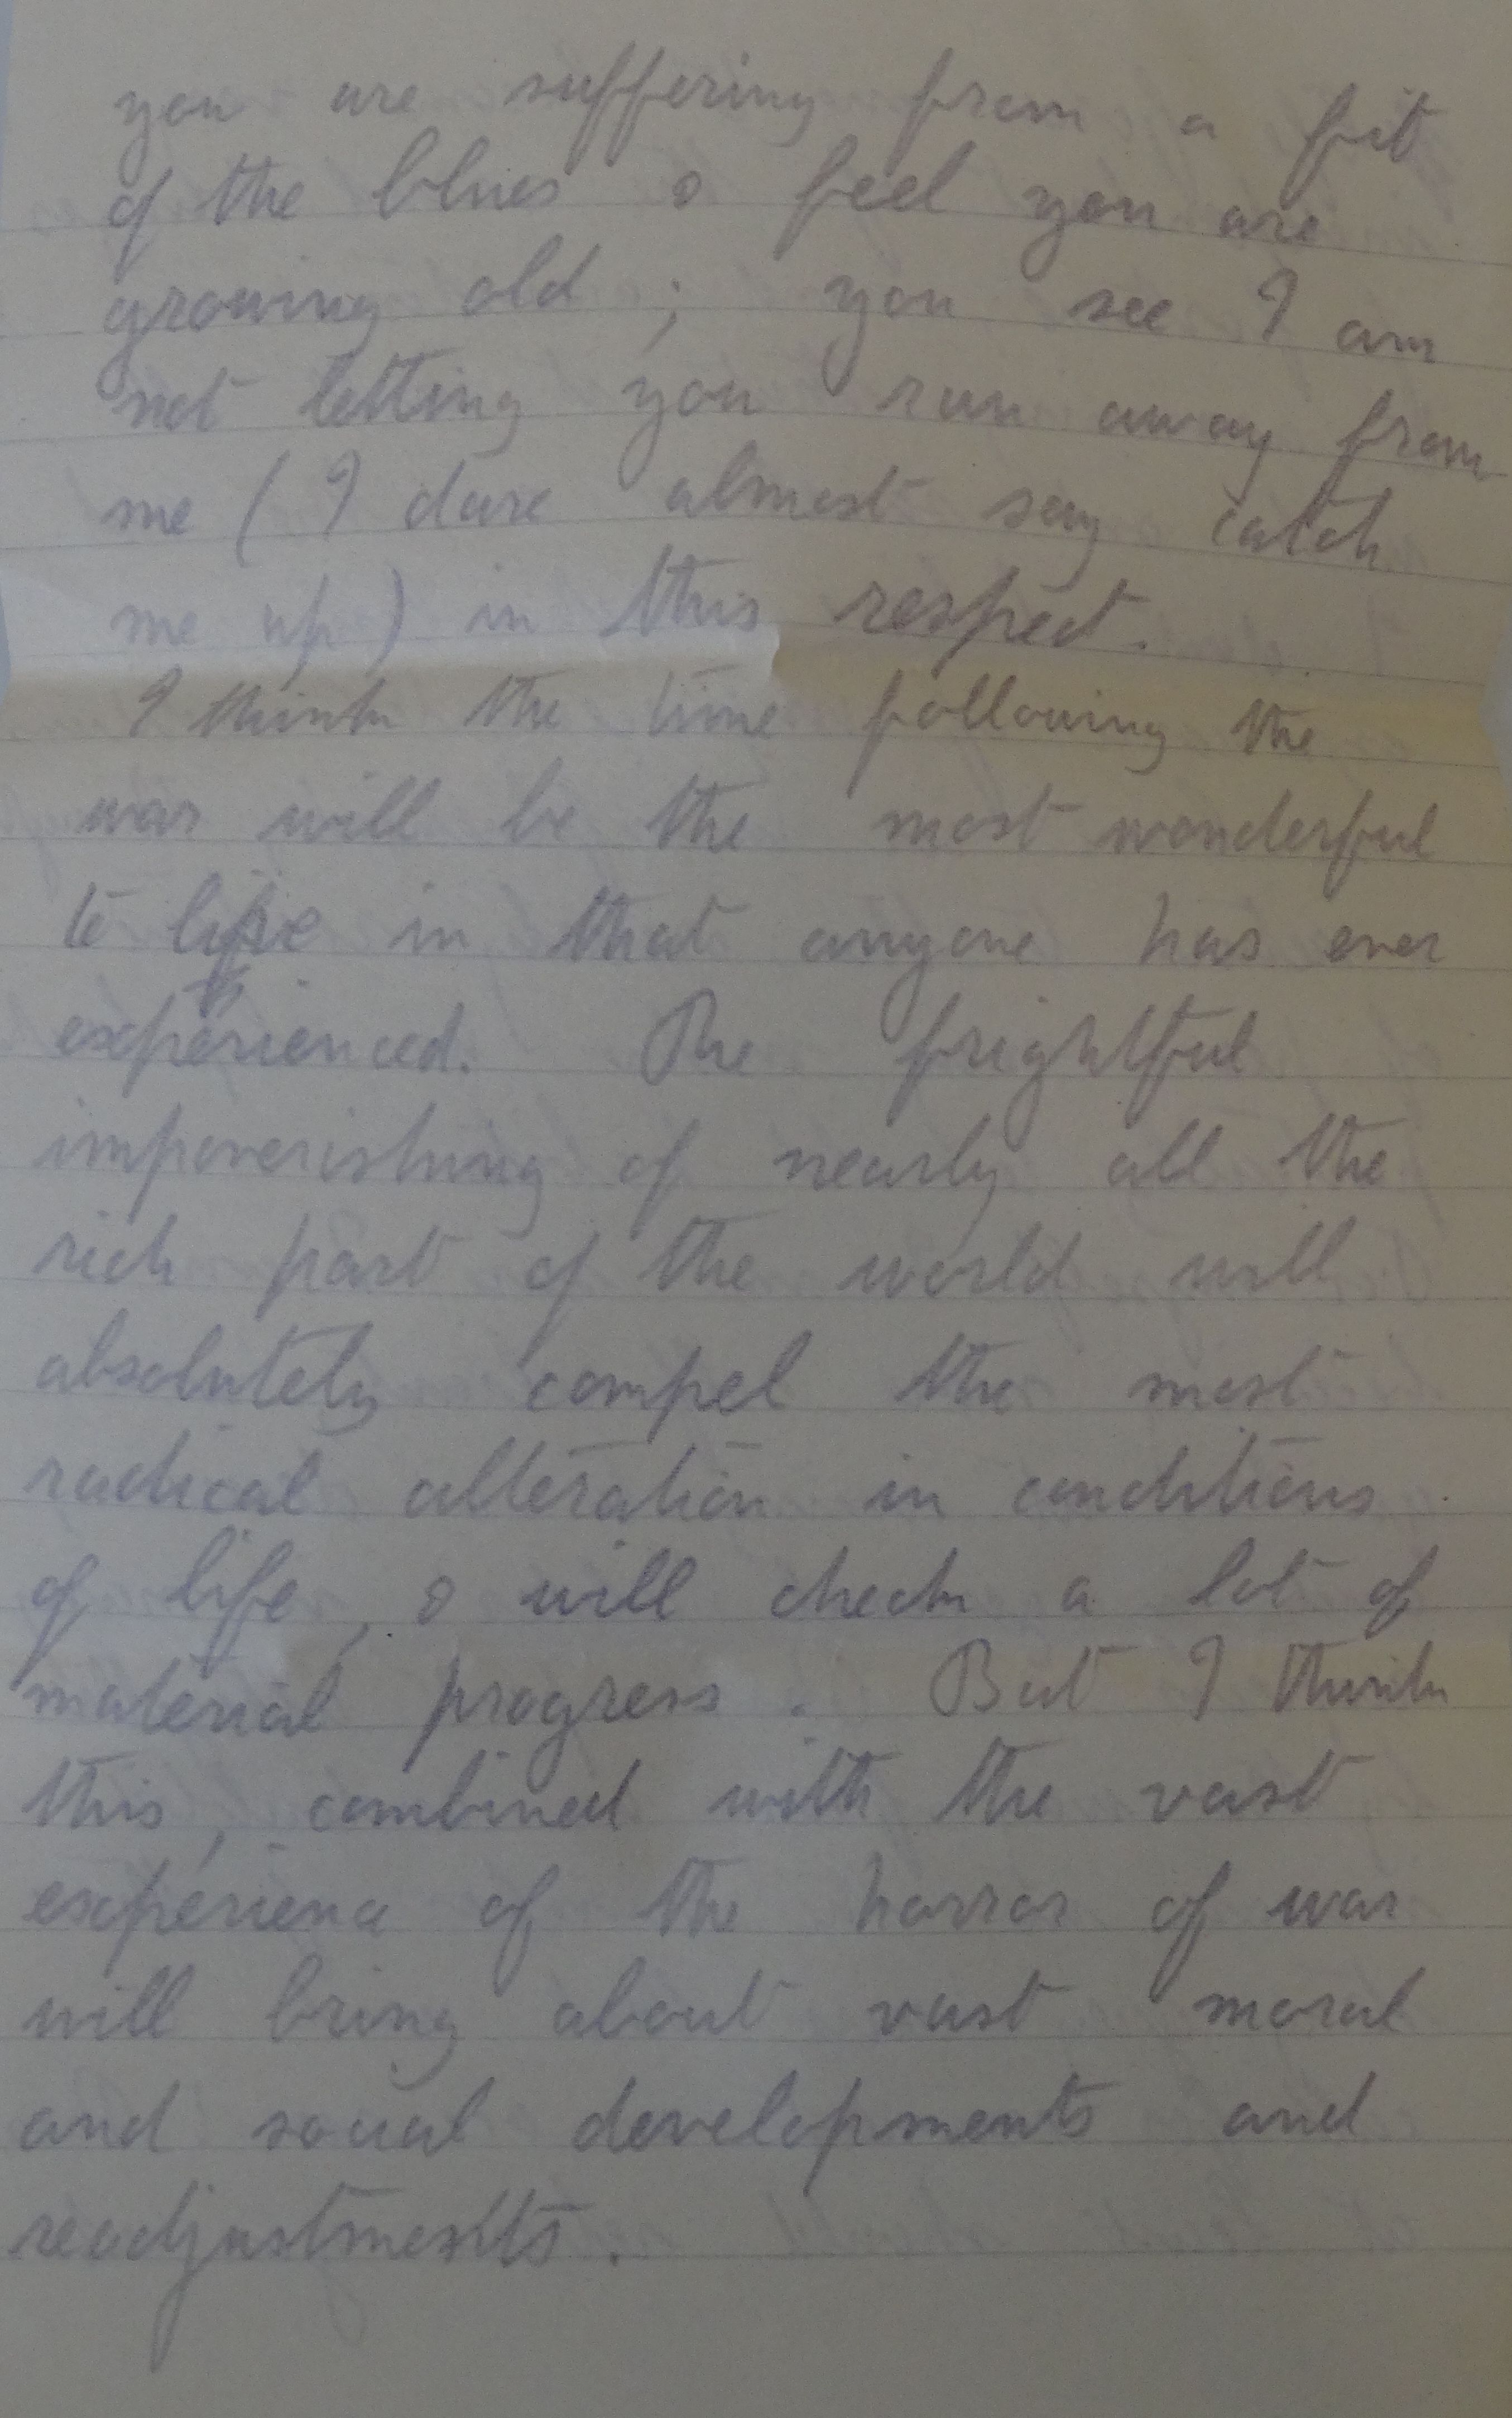 you are suffering from a fit
of the blues & feel you are
growing old ; you see I am
not letting you run away from
me ( I dare almost say catch
me up ) in this respect.
I think the time following the
war will be the most wonderful
to live in that anyone has ever
experienced. The frightful
impoverishing of nearly all the
rich part of the world will
absolutely compel the most
radical alteration in conditions
of life , & will check a lot of
material progress . But I think
this , combined with the vast
experience of the horror of war
will bring about vast moral
and social developments and
readjustments .